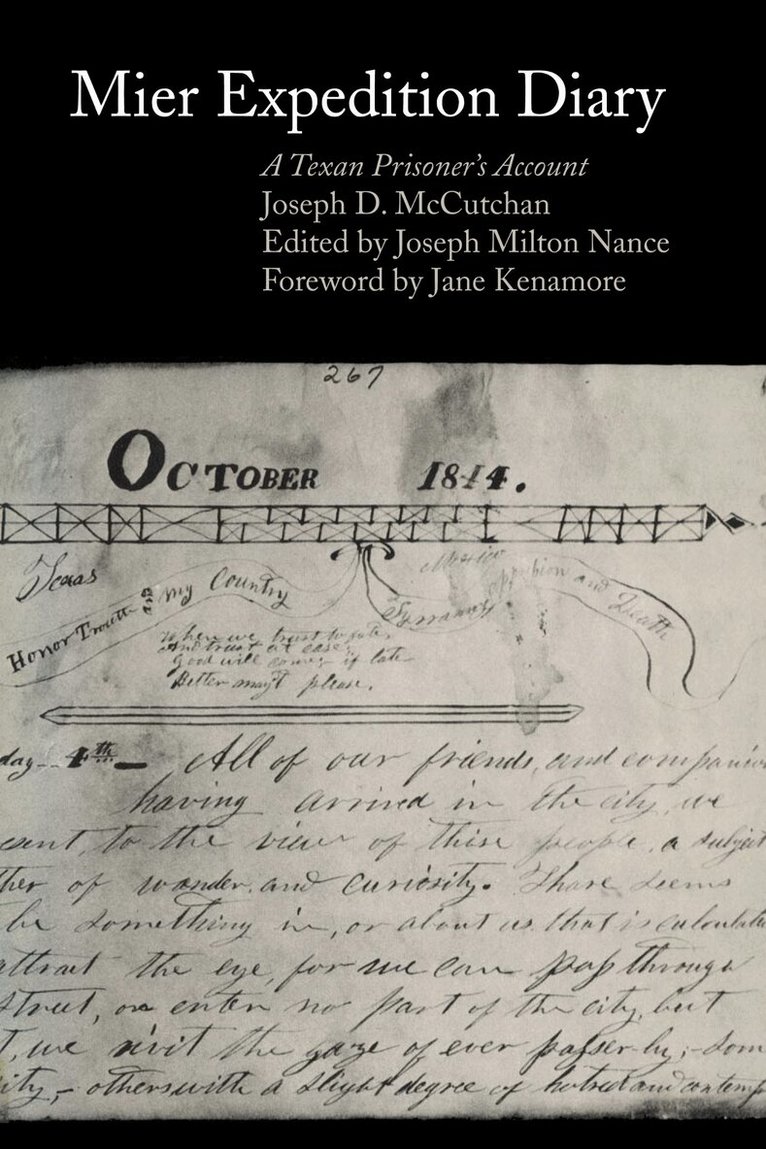 Mier Expedition Diary
A Texan Prisoner's Account
Joseph D. McCutchan
Edited by Joseph Milton Nance
Foreword by Jane Kenamore
267
October 1844.
Texas
Mexico
Honor Trouth and my Country
Tyranny Oppression and Death
When we trust to fate,
And trust at ease;
Good will come, if late
Better may't please.
day 4th All of our friends, and compani
having arrived in the city, we
esent, to the view of these people, a subject
ther of wonder and curiosity. Thare seems
be something in, or about us that is calculat
attract the eye, for we can pass through
street, or enter no part of the city, but
t, we rivit the gaze of ever passer-by;
ity, others with a slight degree of hatred and contemp